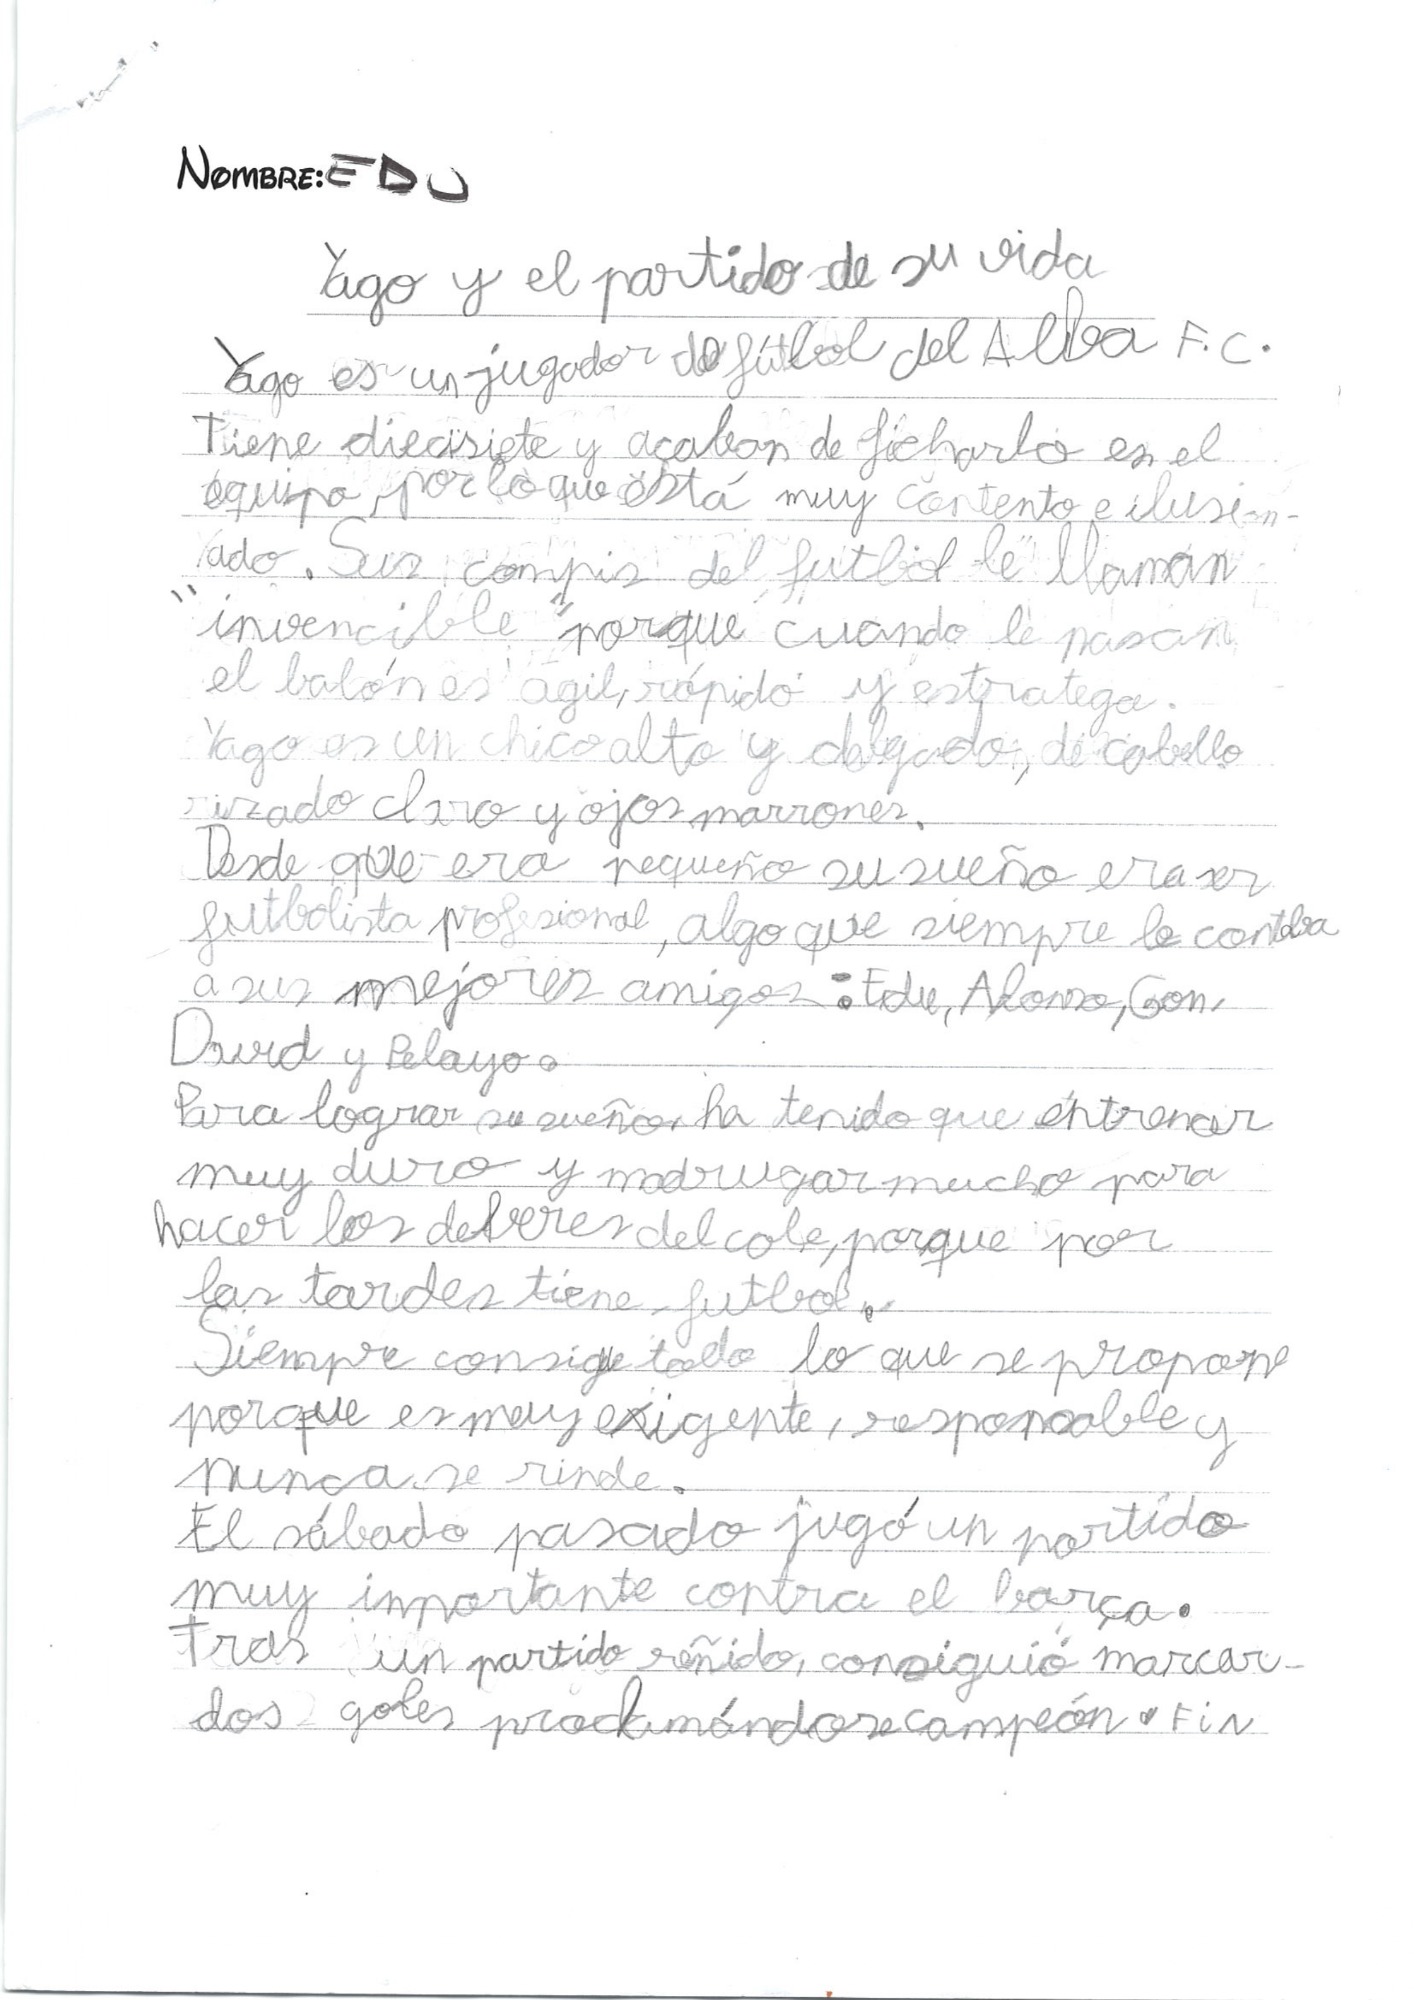 NOMBRE: EDU
Yago y el partido de su vida
Yago es un jugador de fútbol del Alba F.C.
Tiene diecisiete y acaban de ficharlo en el
equipo, por lo que está muy contento e ilusion-
ado. Sus compis del futbol le llaman
"invencible" porque cuando le pasan
el balón es ágil, rápido y estratega.
Yago es un chico alto y delgado, de cabello
rizado claro y ojos marrones.
Desde que era pequeño su sueño era ser
futbolista profesional, algo que siempre le contaba
a sus mejores amigos: Edu, Alonso, Gon,
David y Pelayo.
Para lograr su sueño, ha tenido que entrenar
muy duro y madrugar mucho para
hacer los deberes del cole, porque por
las tardes tiene futbol.
Siempre consigue todo lo que se propone
porque es muy exigente, responsable y
nunca se rinde.
El sábado pasado jugó un partido
muy inportante contra el barça.
Tras un partido reñido, consiguió marcar-
dos goles proclamándose campeón. FiN